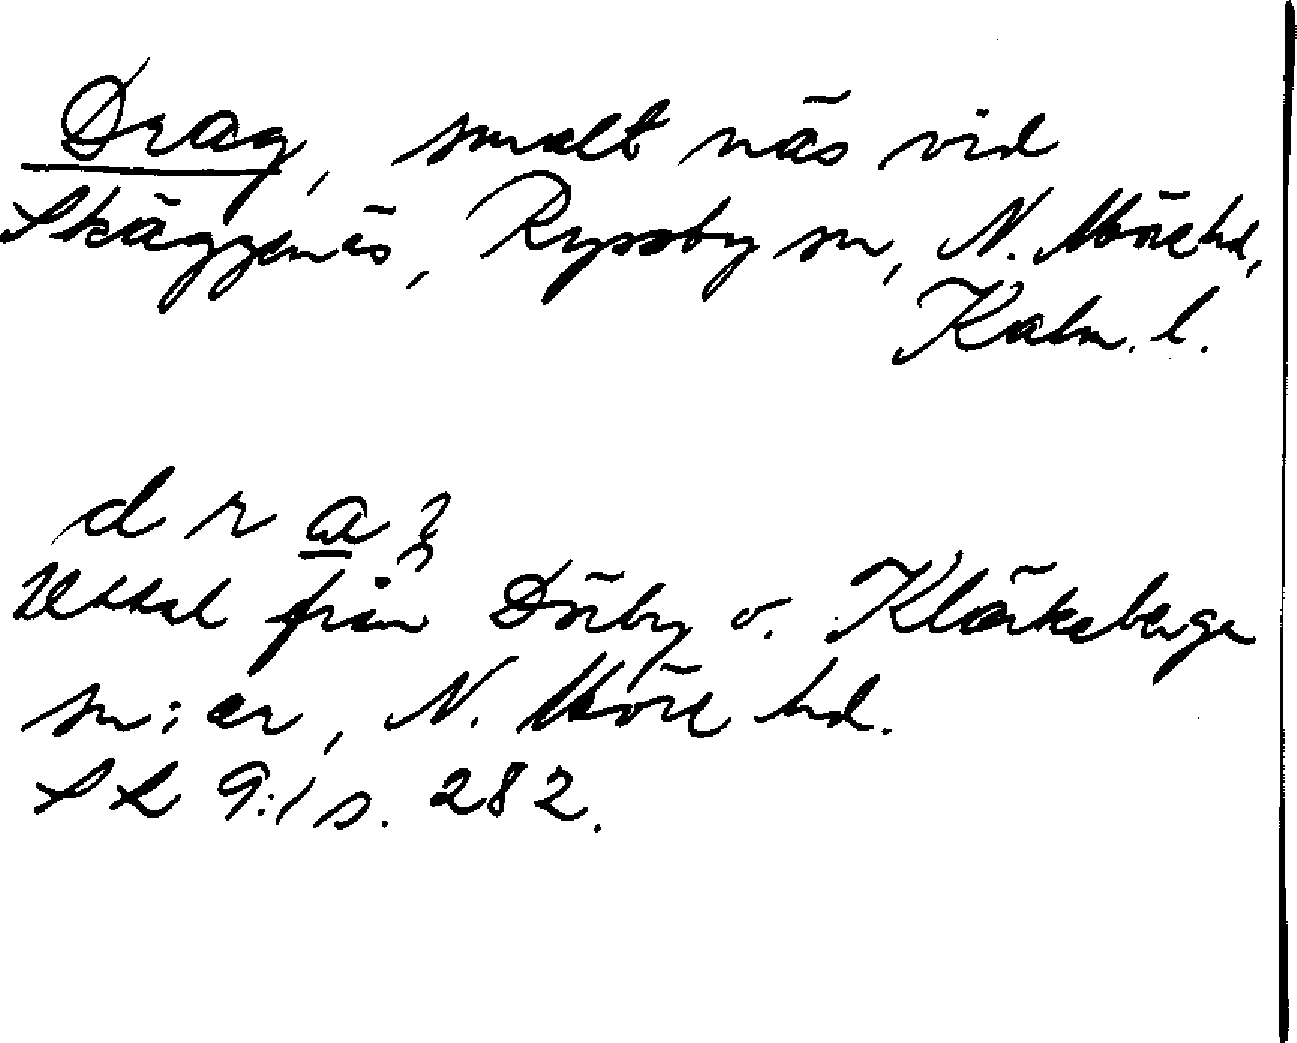 Drag, smalt näs vid
Skäggenäs, Ryssby sn, N. Möre hd,
Kalm. l.
d r a
Uttal från Dörby o. Kläckeberga
sn:ar, N. Möre hd.
SL 9:1 s. 282.